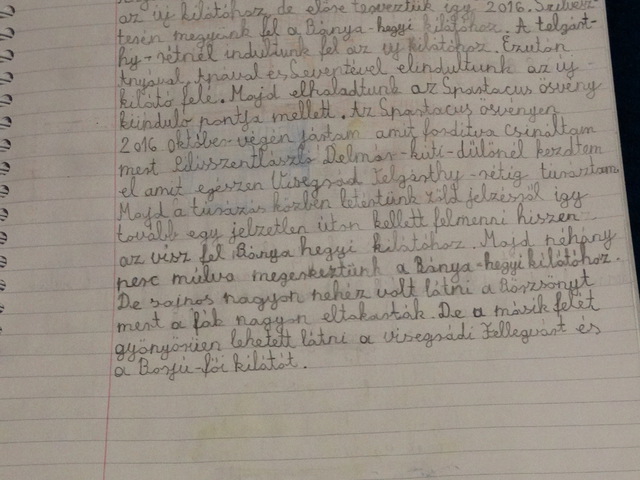 az új kilátóhoz de előre terveztük így 2016. Szilvesz-
terén megyünk fel a Bánya-hegyi kilátóhoz. A telgárt-
hy-rétnél indultunk fel az új kilátóhoz. Ezután
Anyával, Apával és Leventével elindultunk az új
kilátó felé. Majd elhaladtunk az Spartacus ösvény
kiinduló pontja mellett. Az Spartacus ösvényen
2016 október végén jártam amit fordítva csináltam
mert Pilisszentlászló Delmár-kúti-dűlőnél kezdtem
el amit egészen Visegrád Telgárthy-rétig túráztam.
Majd a túrázás közben letértünk zöld jelzésről így
tovább egy jelzetlen úton kellett felmenni hiszen
az visz fel Bánya hegyi kilátóhoz. Majd néhány
perc múlva megérkeztünk a Bánya-hegyi kilátóhoz.
De sajnos nagyon nehéz volt látni a Börzsönyt
mert a fák nagyon eltakarták. De a másik felét
gyönyörűen lehetett látni a visegrádi Fellegvárt és
a Borjú-fői kilátót.